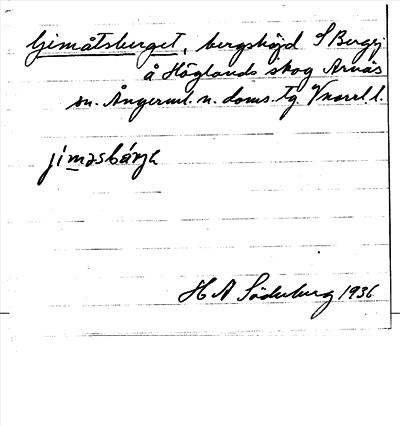 Gimåtsberget, bergshöjd S Bergsj
å Höglands skog Arnäs
sn. Ångerml. n. doms. tg. Vnorrl. l.
jiməsbárjə
H A Söderberg 1936